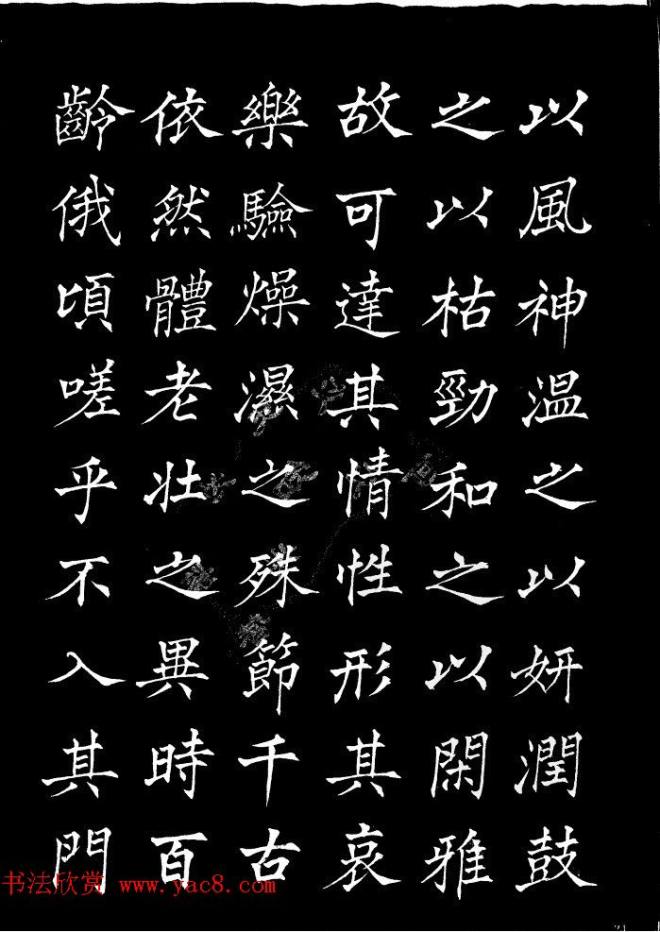 以風神温之以妍潤鼓
之以枯勁和之以閑雅
故可達其情性形其哀
樂驗燥濕之殊節千古
依然體老壯之異時百
齡俄頃嗟乎不入其門
书法欣赏 www.yac8.com
21